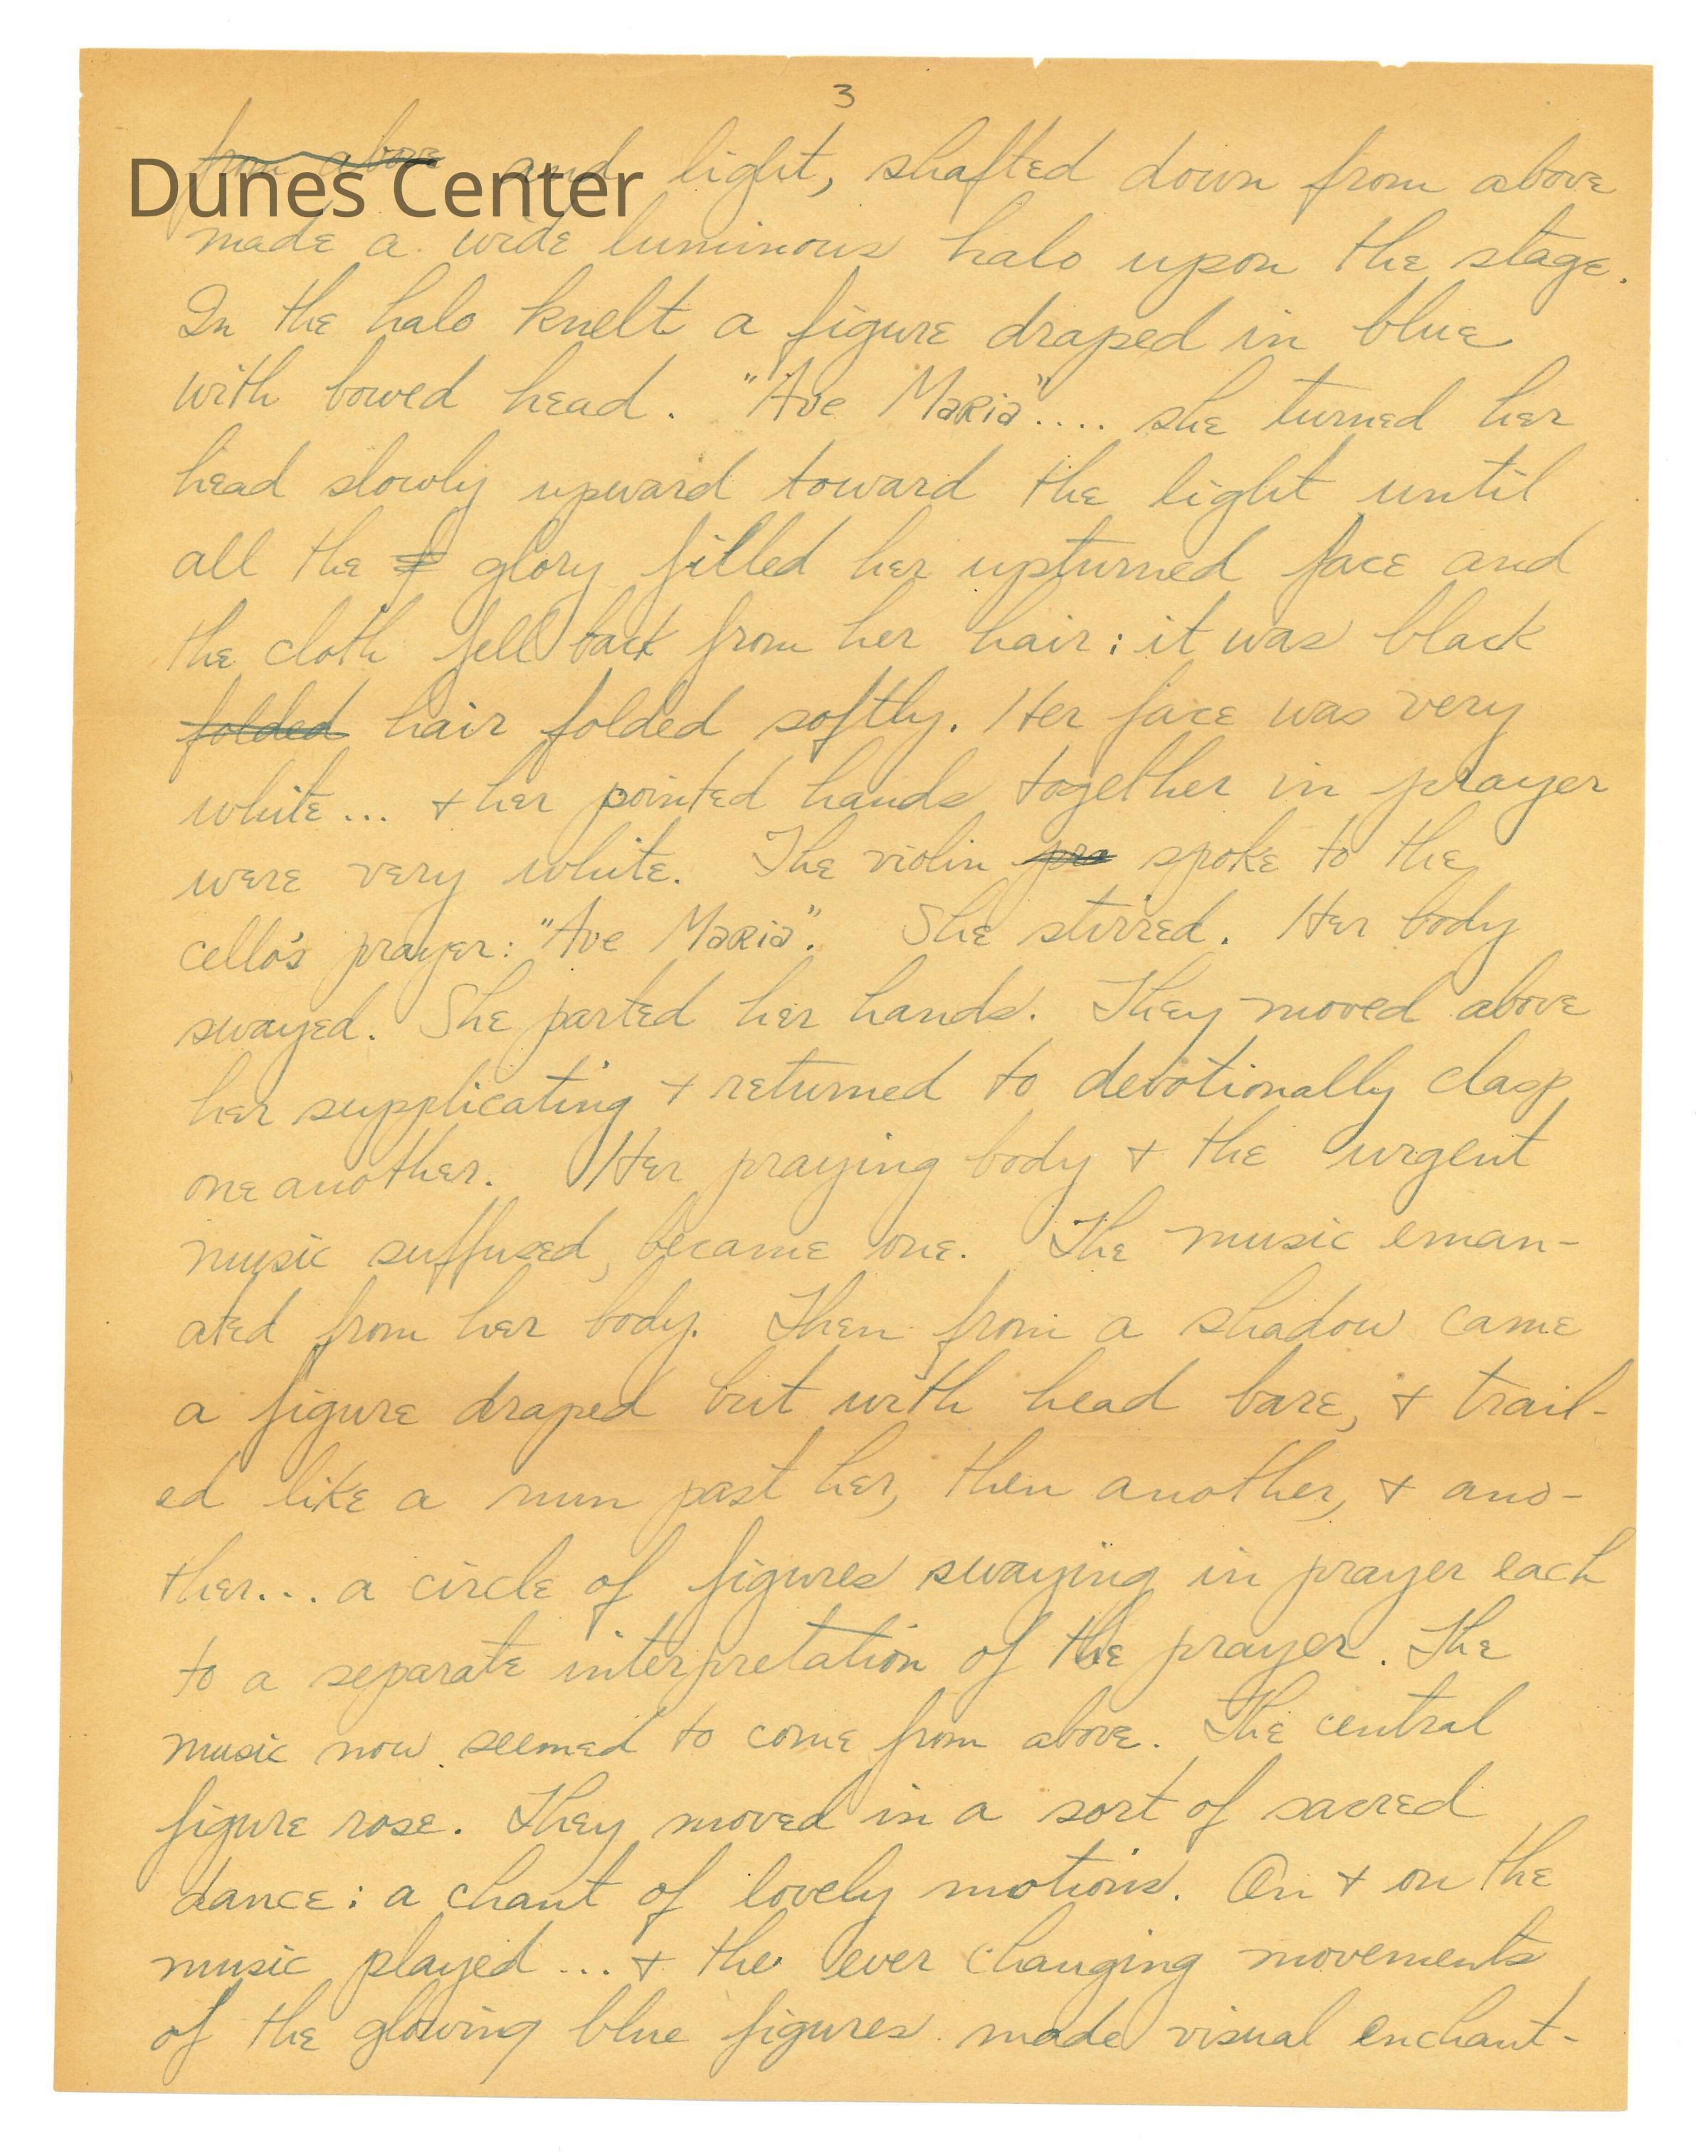 3
from above and light, shafted down from above
Dunes Center
made a wide luminous halo upon the stage.
In the halo knelt a figure draped in blue
with bowed head. "Ave Maria".... she turned her
head slowly upward toward the light until
all the f glory filled her upturned face and
the cloth fell back from her hair: it was black
folded hair folded softly. Her face was very
white... + her pointed hands together in prayer
were very white. The violin pra spoke to the
cello's prayer: "Ave Maria". She stirred. Her body
swayed. She parted her hands. They moved above
her supplicating + returned to devotionally clasp
one another. Her praying body + the urgent
music suffused, became one. The music eman-
ated from her body. Then from a shadow came
a figure draped but with head bare, + trail-
ed like a nun past her, then another, + ano-
ther... a circle of figures swaying in prayer each
to a separate interpretation of the prayer. The
music now seemed to come from above. The central
figure rose. They moved in a sort of sacred
dance: a chant of lovely motions. On + on the
music played... + the ever changing movements
of the glowing blue figures made visual enchant-